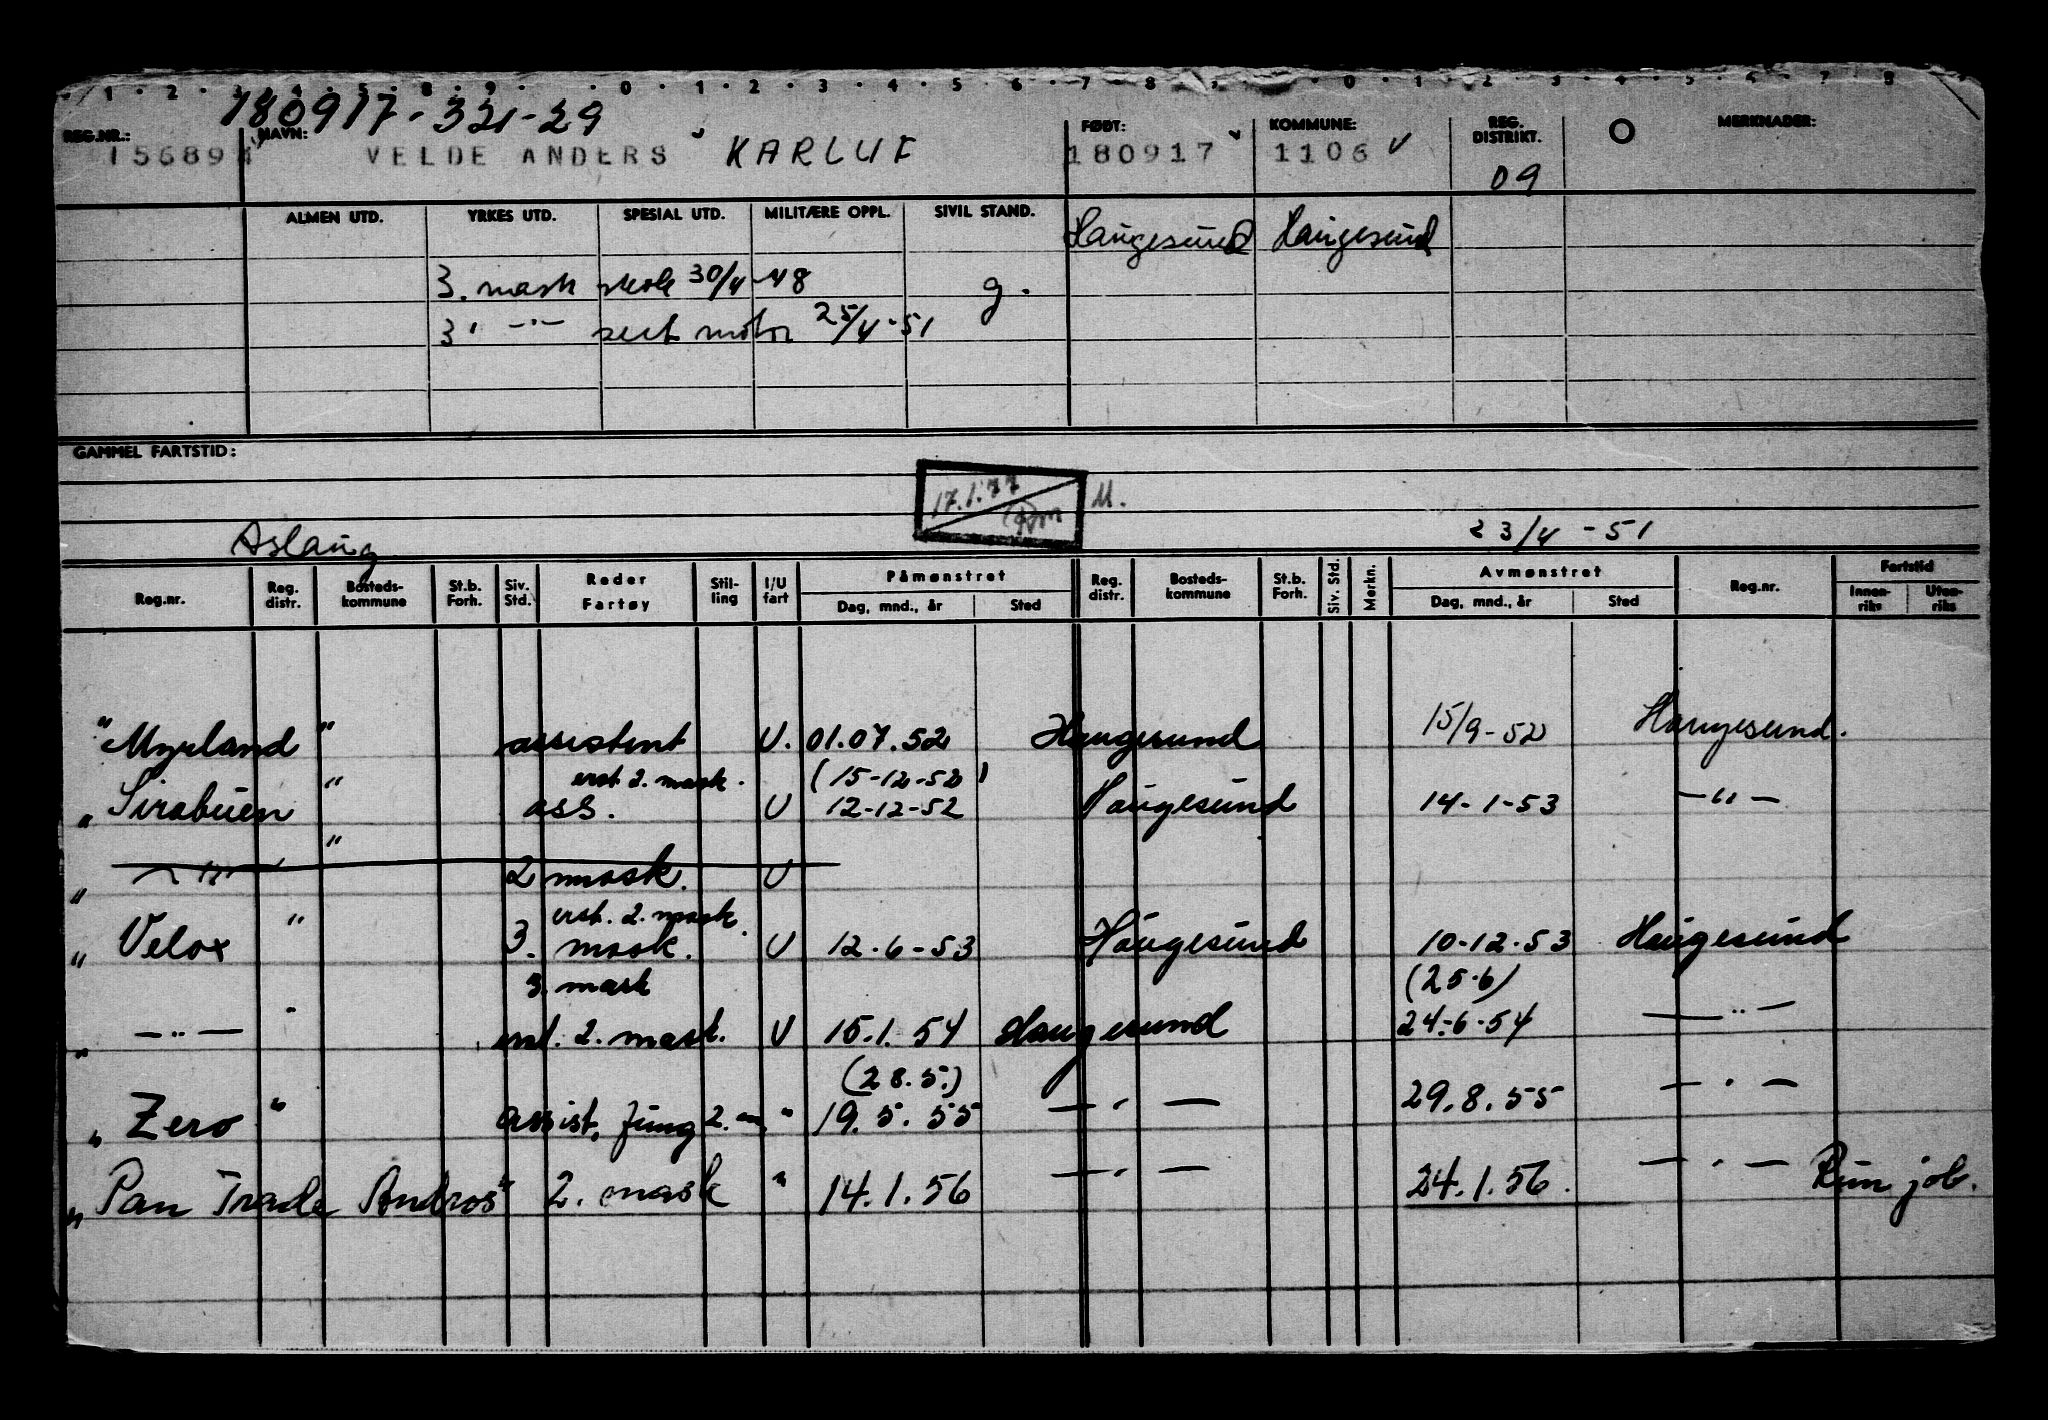 1 2 3 4 5 8 9 0 1 2 3 4 5 6 7 8 0 1 2 3 4 5 6 7 8
180917-321-29
REG.NR.: NAVN: FØDT: KOMMUNE: REG. DISTRIKT. MERKNADER:
156894 VELDE ANDERS KARLUF 180917 1106 09
ALMEN UTD. YRKES UTD. SPESIAL UTD. MILITÆRE OPPL. SIVIL STAND. Haugesund Haugesund
3. mask skole 30/4-48 g.
3' -"- sert motor 25/4-51
GAMMEL FARTSTID:
17.1.77 M.
Aslaug 23/4-51
Reg.nr. Reg. distr. Bosteds-kommune St.b. Forh. Siv. Std. Reder Fartøy Stil-ling I/U fart Påmønstret Dag, mnd., år Sted Reg. distr. Bosteds-kommune St.b. Forh. Siv. Std. Merkn. Avmønstret Dag, mnd., år Sted Reg.nr. Fartstid Innen-riks Uten-riks
"Myrland" assistent U. 01.07.52 Haugesund 15/9-52 Haugesund.
erst 2. mask. (15-12-52)
"Sirabuen" ass. U 12-12-52 Haugesund 14-1-53 -"-
" -"- " 2 mask. U
erst. 2. mask.
"Velox" 3. mask. U 12-6-53 Haugesund 10-12-53 Haugesund
3 mask (25.6)
" -"- " erst. 2. mask. U 15.1.54 Haugesund 24-6-54 -"-
(28.5.)
"Zero" assist. fung 2. m. " 19.5.55 -"- 29.8.55 -"-
"Pan Trade Andros" 2. mask " 14.1.56 -"- 24.1.56. -"- Run job.